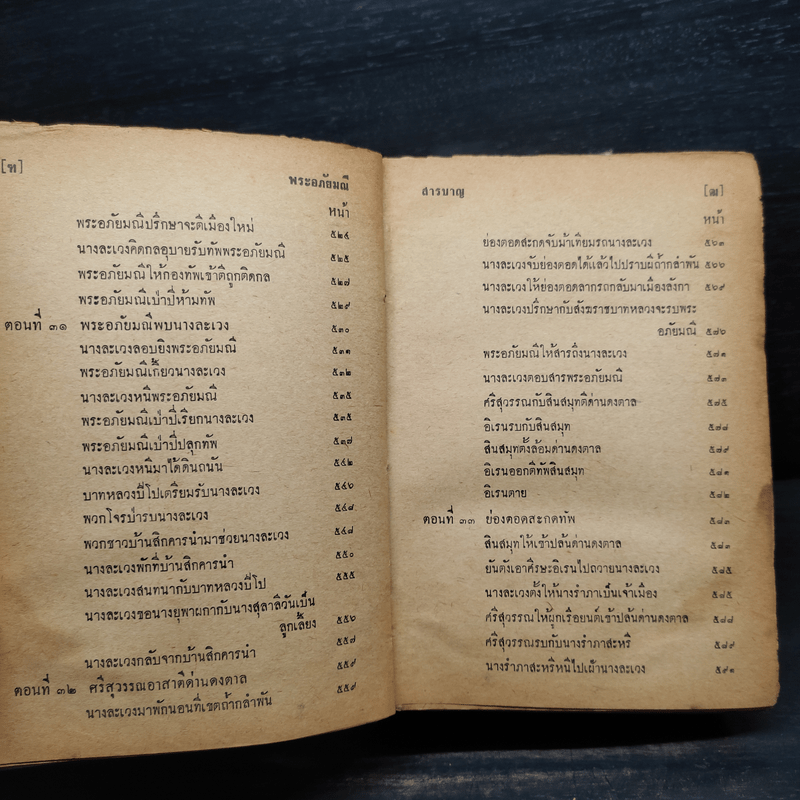 [ฑ] พระอภัยมณี
หน้า
พระอภัยมณีปรึกษาจะตีเมืองใหม่ ๕๒๔
นางละเวงคิดกลอุบายรับทัพพระอภัยมณี ๕๒๕
พระอภัยมณีให้กองทัพเข้าตีถูกติดกล ๕๒๗
พระอภัยมณีเป่าปี่ห้ามทัพ ๕๒๙
ตอนที่ ๓๑ พระอภัยมณีพบนางละเวง ๕๓๐
นางละเวงลอบยิงพระอภัยมณี ๕๓๑
พระอภัยมณีเกี้ยวนางละเวง ๕๓๒
นางละเวงหนีพระอภัยมณี ๕๓๕
พระอภัยมณีเป่าปี่เรียกนางละเวง ๕๓๕
พระอภัยมณีเป่าปี่ปลุกทัพ ๕๓๗
นางละเวงหนีมาได้ดินถนัน ๕๔๒
บาทหลวงปีโปเตรียมรับนางละเวง ๕๔๖
พวกโจรป่ารบนางละเวง ๕๔๘
พวกชาวบ้านสิกคารนำมาช่วยนางละเวง ๕๔๘
นางละเวงพักที่บ้านสิกคารนำ ๕๕๐
นางละเวงสนทนากับบาทหลวงปีโป ๕๕๕
นางละเวงขอนางยุพาผกากับนางสุลาลีวันเป็น
ลูกเลี้ยง ๕๕๖
นางละเวงกลับจากบ้านสิกคารนำ ๕๕๗
ตอนที่ ๓๒ ศรีสุวรรณอาสาตีด่านดงตาล ๕๕๙
นางละเวงมาพักนอนที่เขตถ้ำกลำพัน ๕๕๙
สารบาญ [ฒ]
หน้า
ย่องตอดสะกดจับม้าเทียมรถนางละเวง ๕๖๓
นางละเวงจับย่องตอดได้แล้วไปปราบผีถ้ำกลำพัน ๕๖๖
นางละเวงให้ย่องตอดลากรถกลับมาเมืองลังกา ๕๖๙
นางละเวงปรึกษากับสังฆราชบาทหลวงจะรบพระ
อภัยมณี
พระอภัยมณีให้สารถึงนางละเวง
นางละเวงตอบสารพระอภัยมณี
ศรีสุวรรณกับสินสมุทตีด่านดงตาล
อิเรนรบกับสินสมุท
สินสมุทตั้งล้อมด่านดงตาล
อิเรนออกตีทัพสินสมุท
อิเรนตาย
ตอนที่ ๓๓ ย่องตอดสะกดทัพ ๕๘๓
สินสมุทให้เข้าปล้นด่านดงตาล ๕๘๓
ยันตังเอาศีรษะอิเรนไปถวายนางละเวง ๕๘๕
นางละเวงตั้งให้นางรำภาเป็นเจ้าเมือง ๕๘๕
ศรีสุวรรณให้ผูกเรือยนต์เข้าปล้นด่านดงตาล ๕๘๘
ศรีสุวรรณรบกับนางรำภาสะหรี ๕๘๙
นางรำภาสะหรีหนีไปเฝ้านางละเวง ๕๙๑